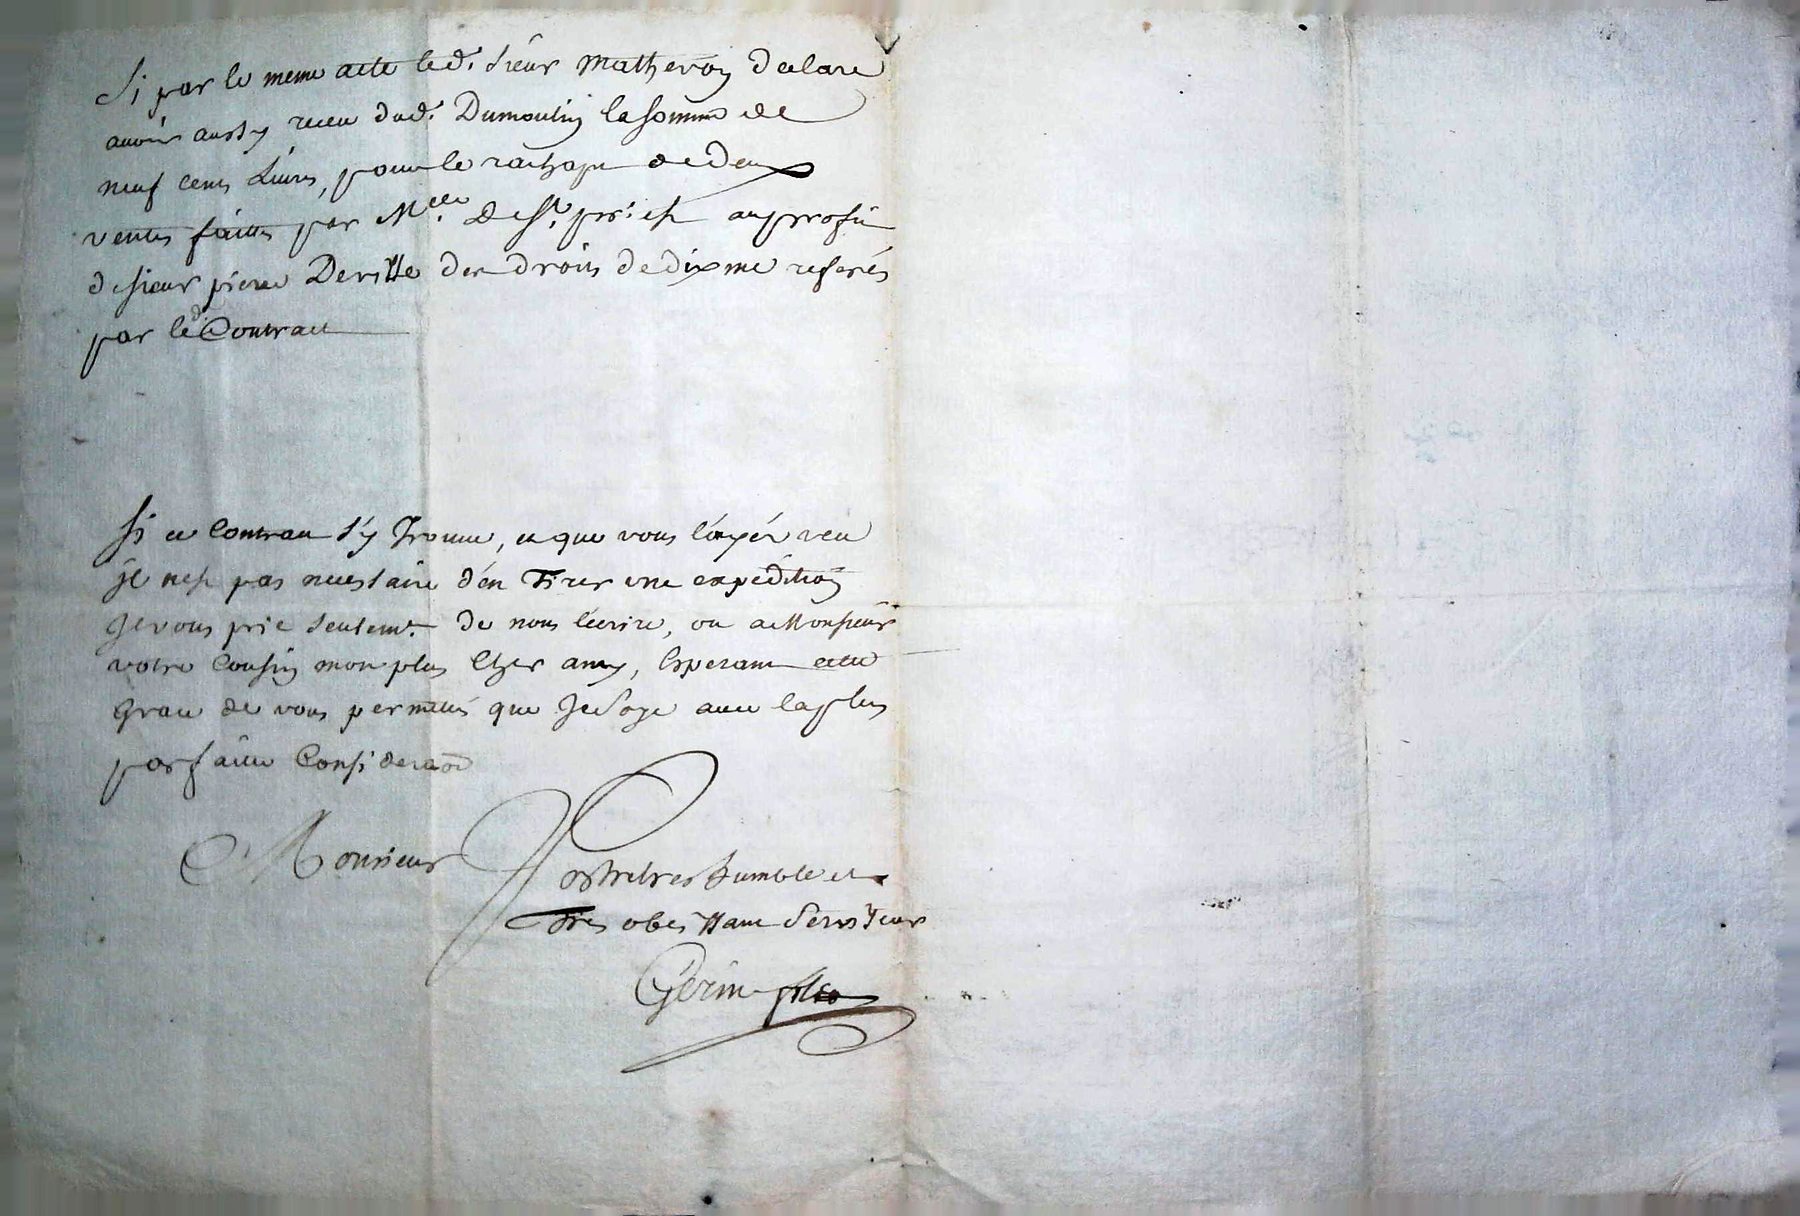 Si par le meme acte led. sieur Matheron declare
avoir aussy receu dud. Dumoulin la somme de
neuf cens Livres, pour le rachapt de deux
ventes faittes par Melle. De St. pr. au proffit
de sieur pierre Deville des droits de dixme
par led. Contract
Si ce Contract s'y Trouve, et que vous l'ayés veu
il n'est pas necessaire d'en Tirer une expedition
Je vous prie seulemt. de nous l'ecrire, ou a Monsieur
votre Cousin mon plus Cher amy, Esperant cette
grace de vous permettés que Je soye avec la plus
parfaitte Consideraon
Monsieur
Vostre tres humble et
Tres obeissant Serviteur
Gerin fils